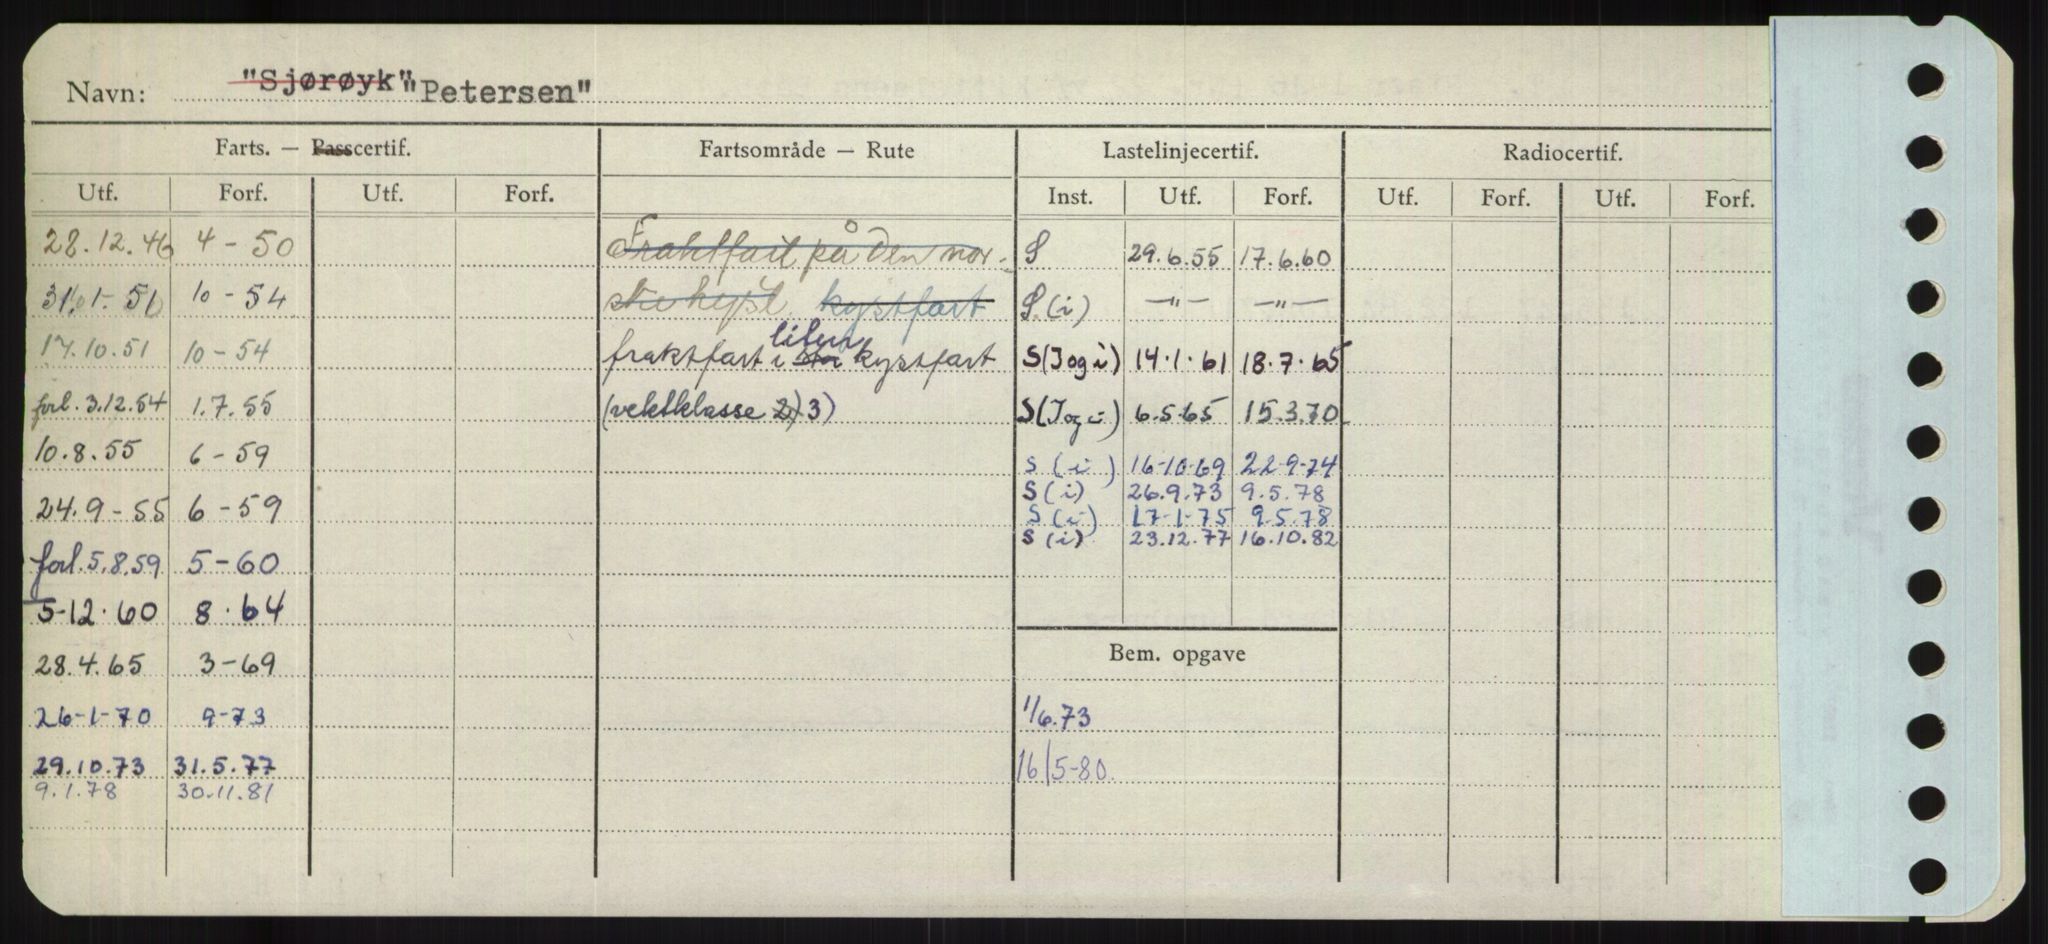 Navn: "Sjørøyk" "Petersen"
Farts. — Passcertif. Fartsområde — Rute Lastelinjecertif. Radiocertif.
Utf. Forf. Utf. Forf. Inst. Utf. Forf. Utf. Forf. Utf. Forf.
28.12.46 4-50 Fraktfart på den nor- S 29.6.55 17.6.60
10-54 ske kyst, kystfart S.(i) —"— —"—
17.10.51 10-54 fraktfart i kystfart S(I og i) 14.1.61 18.7.65
forl. 3.12.54 1.7.55 (vektklasse 2) 3) S(I og i) 6.5.65 15.3.70
10.8.55 6-59 S (i) 16-10-69 22-9-74
S (i) 26.9.73 9.5.78
24.9-55 6-59 S (i) 17-1-75 9.5.78
S (i) 23.12.77 16.10.82
forl. 5.8.59 5-60
5-12.60 8.64
28.4.65 3-69 Bem. opgave
26-1-70 9-73 1/6.73
29.10.73 31.5.77 16/5-80
9.1.78 30.11.81